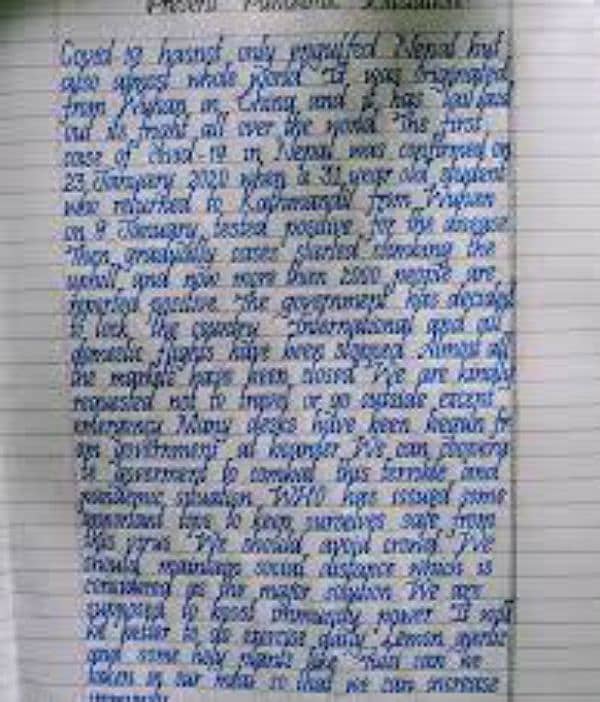 Present Pandemic Situation
Covid-19 hasnot only engulfed Nepal but
also whole world. It was originated
from Wuhan in China and it has
out its fright all over the world. The first
case of Covid-19 in Nepal was confirmed on
23 January 2020 when a 31 year old student
who returned to Kathmandu from Wuhan
on 9 January, tested positive for the disease.
Then, gradually cases started climbing the
and now more than 2000 people are
reported positive. The government has decided
to lock the country. International and all
domestic flights have been stopped. Almost all
the markets have been closed. We are kindly
requested not to travel or go outside except
emergency. Many desks have been
government at We can
government to combat this terrible and
pandemic situation. WHO has issued some
important tips to keep ourselves safe from
this virus. We should avoid crowd. We
should maintain social distance which is
considered as the major solution. We are
supposed to boost immunity power. It
be better to do exercise daily. Lemon,
and some holy plants like Tulsi can be
taken in our meal so that we can increase
immunity